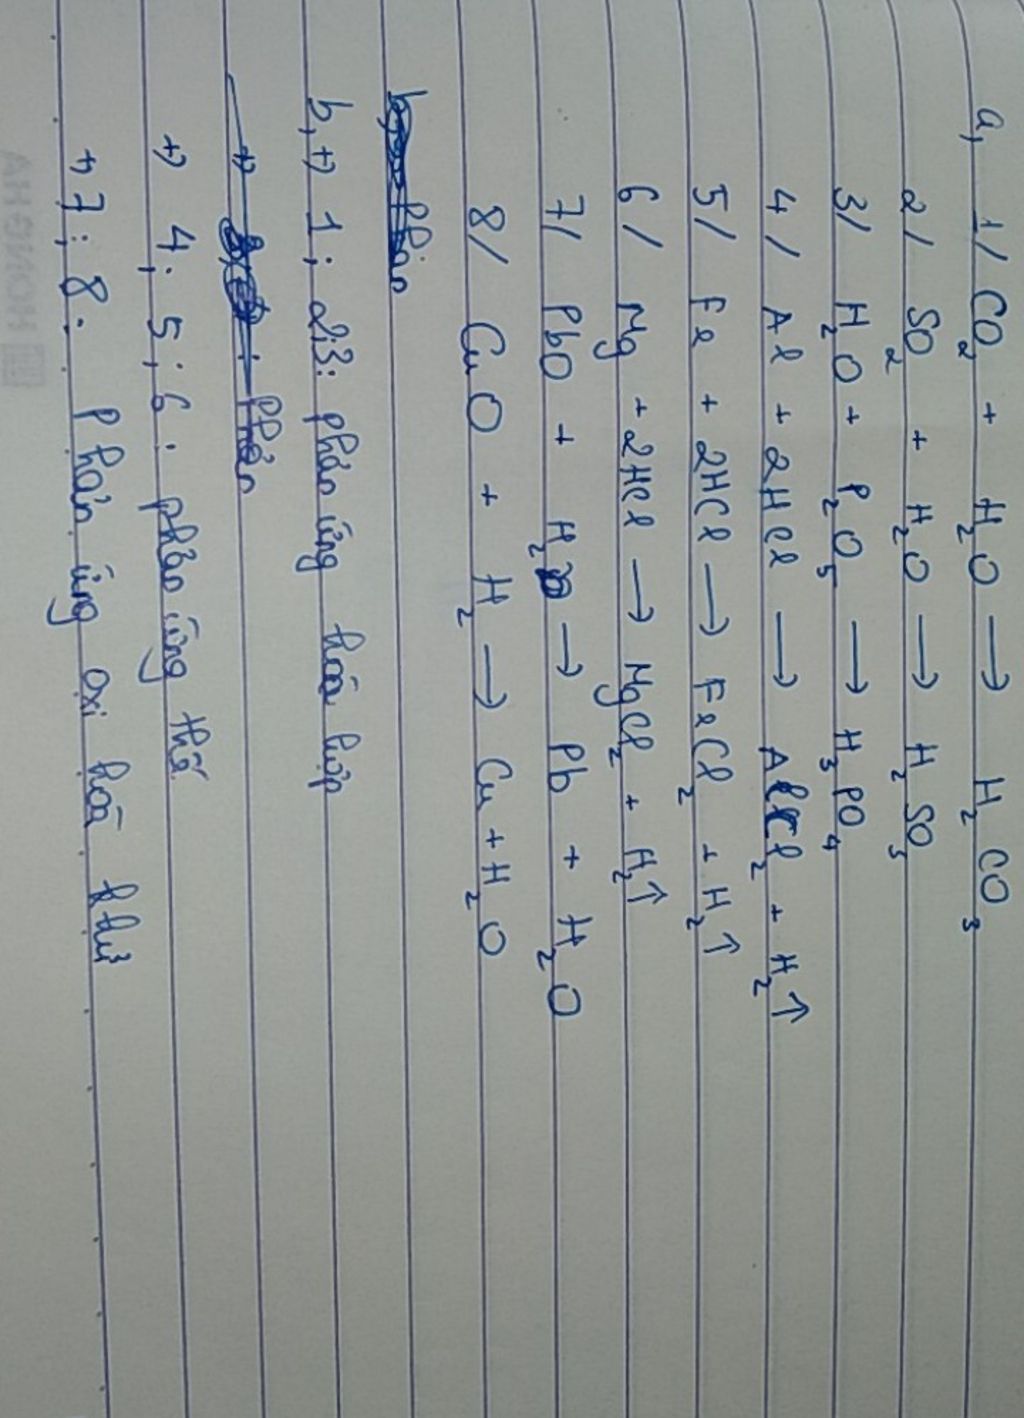 a, 1/ CO₂ + H₂O → H₂CO₃
2/ SO₂ + H₂O → H₂SO₃
3/ H₂O + P₂O₅ → H₃PO₄
4/ Al + 2HCl → AlCl₂ + H₂↑
5/ Fe + 2HCl → FeCl₂ + H₂↑
6/ Mg + 2HCl → MgCl₂ + H₂↑
7/ PbO + H₂ → Pb + H₂O
8/ CuO + H₂ → Cu + H₂O
b, +) 1; 2; 3: phản ứng hoá hợp
+) Phản
+) 4; 5; 6: phản ứng thế
+) 7; 8: Phản ứng oxi hoá khử
HOMESHA